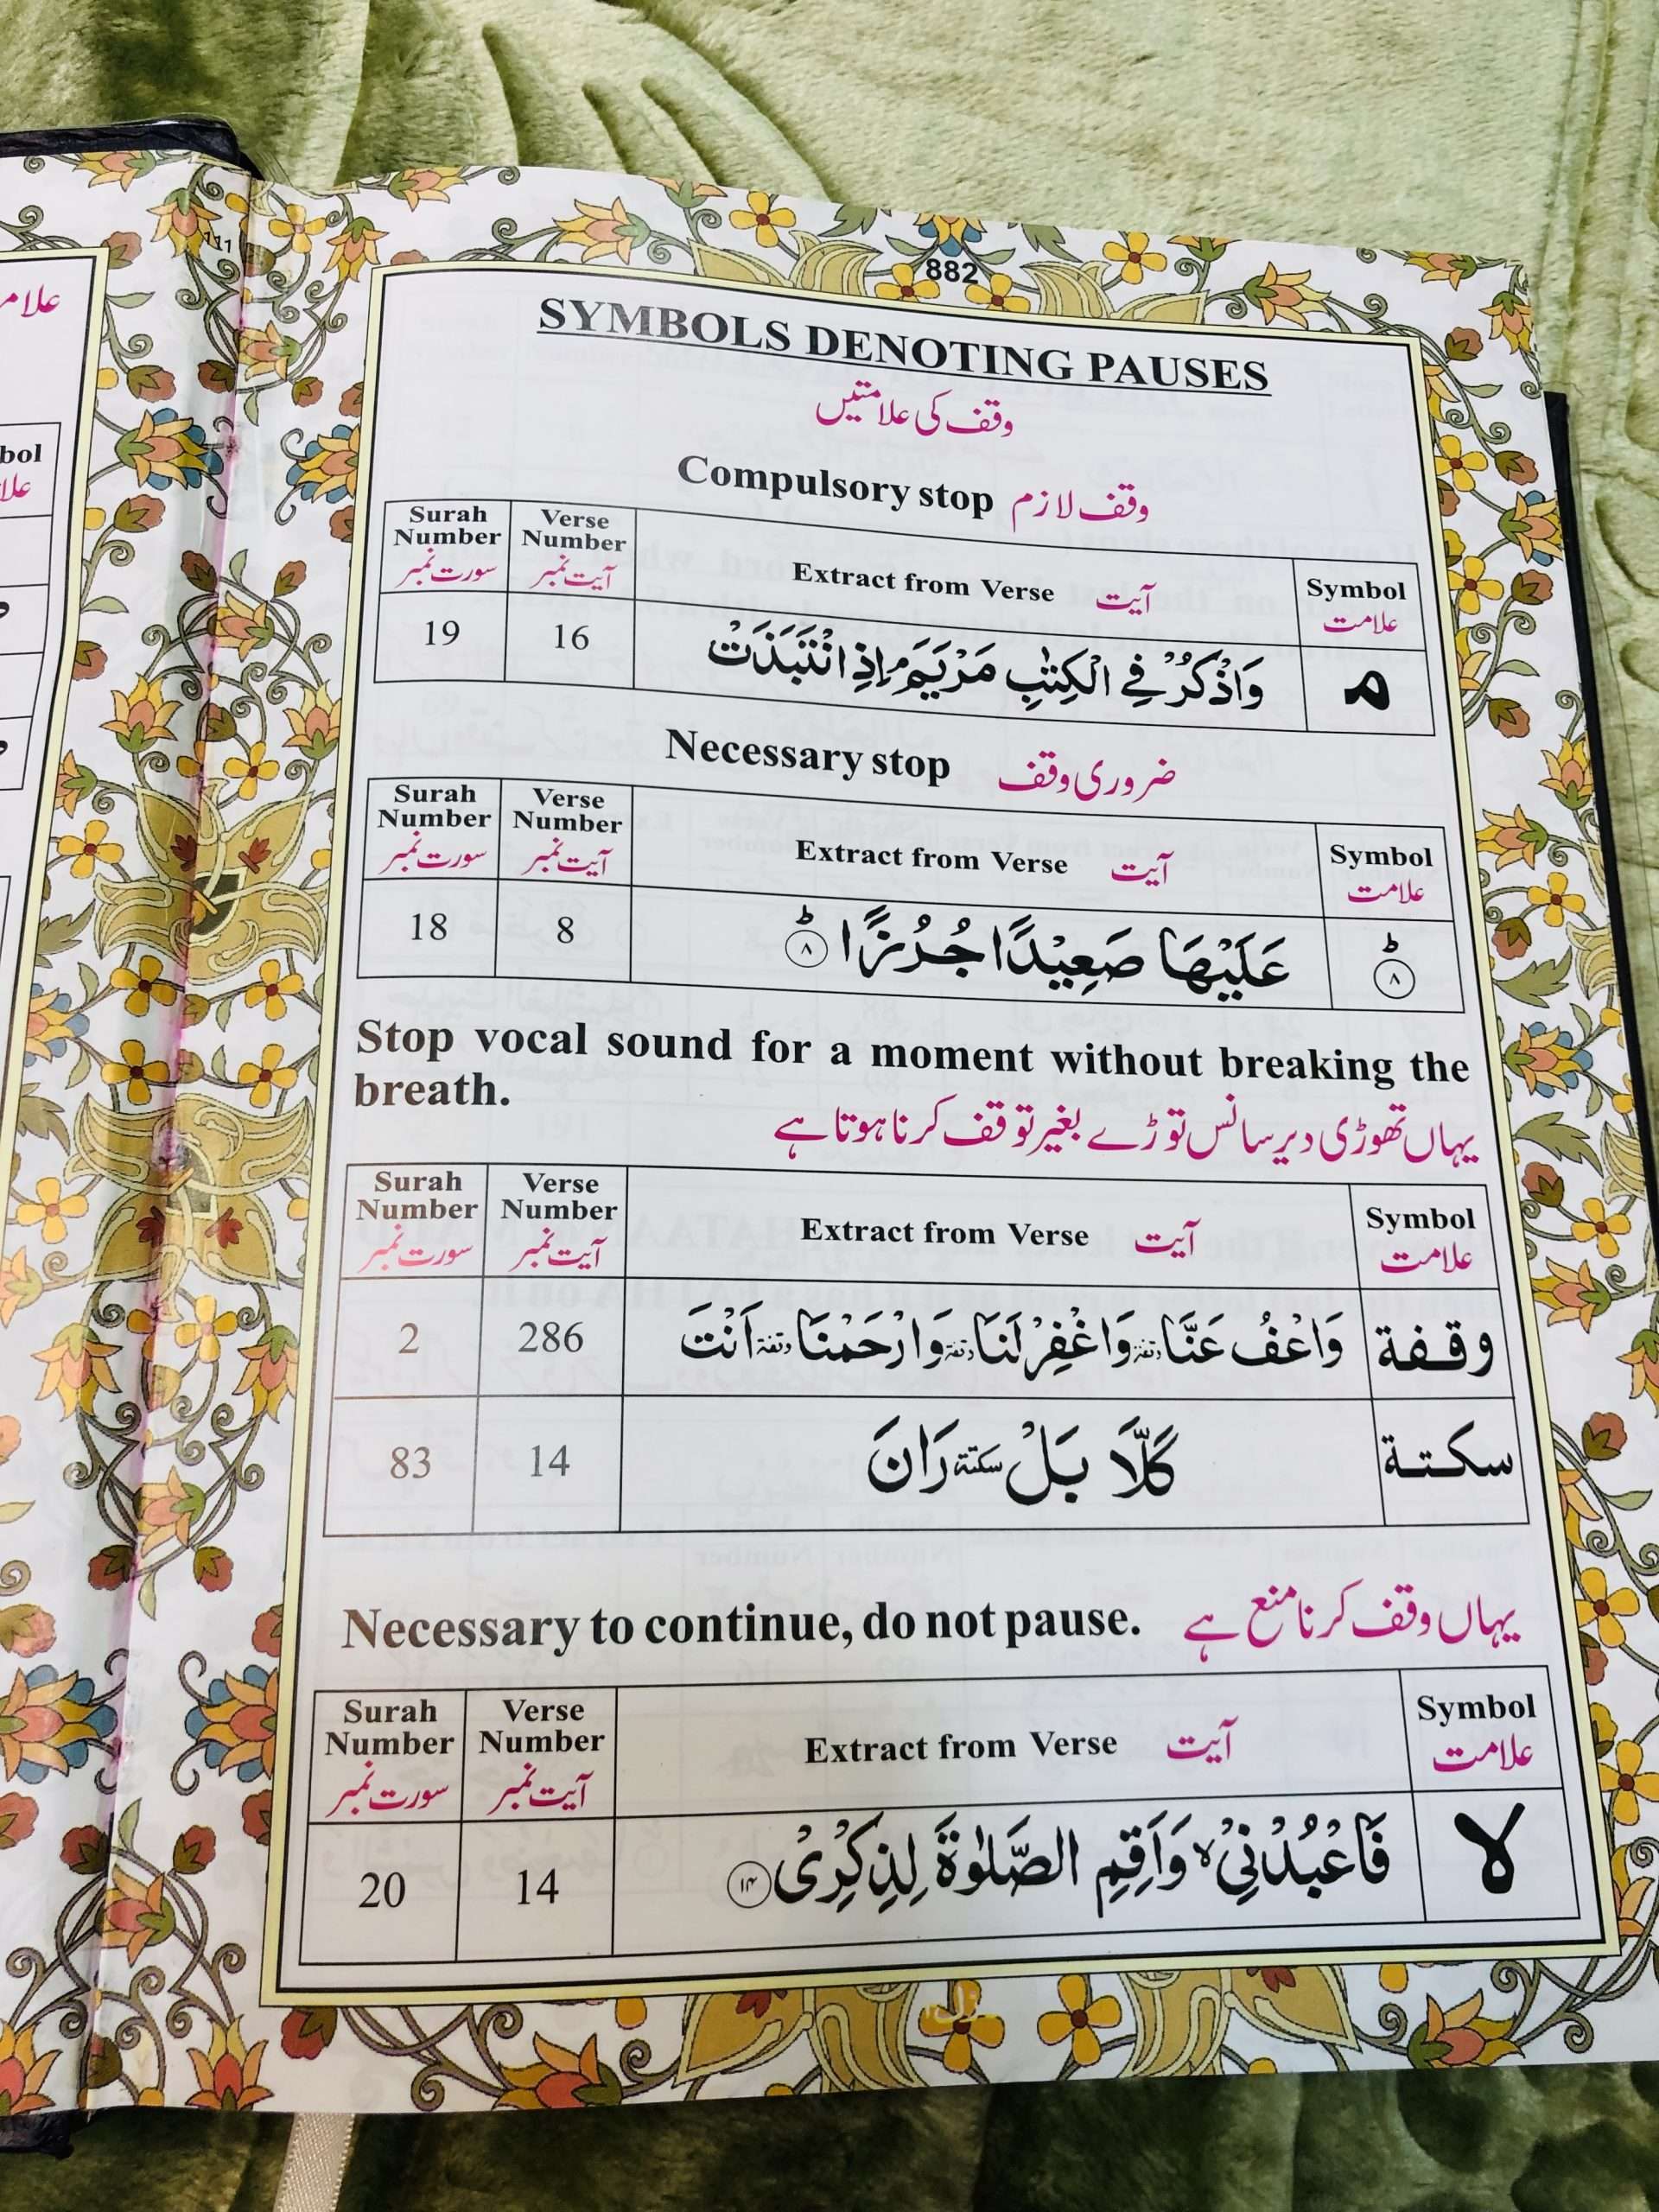 882
SYMBOLS DENOTING PAUSES
وقف کی علامتیں
Compulsory stop وقف لازم
Surah Number سورت نمبر Verse Number آیت نمبر Extract from Verse آیت Symbol علامت
19 16 وَاذْكُرْ فِي الْكِتٰبِ مَرْيَمَ ۘ اِذِ انْتَبَذَتْ م
Necessary stop ضروری وقف
Surah Number سورت نمبر Verse Number آیت نمبر Extract from Verse آیت Symbol علامت
18 8 عَلَيْهَا صَعِيْدًا جُرُزًا ؕ ۸ ؕ ۸
Stop vocal sound for a moment without breaking the
breath.
یہاں تھوڑی دیر سانس توڑے بغیر توقف کرنا ہوتا ہے
Surah Number سورت نمبر Verse Number آیت نمبر Extract from Verse آیت Symbol علامت
2 286 وَاعْفُ عَنَّا وقفة وَاغْفِرْ لَنَا وقفة وَارْحَمْنَا وقفة اَنْتَ وقفة
83 14 كَلَّا بَلْ سكتة رَانَ سكتة
Necessary to continue, do not pause. یہاں وقف کرنا منع ہے
Surah Number سورت نمبر Verse Number آیت نمبر Extract from Verse آیت Symbol علامت
20 14 فَاعْبُدْنِيْ ۙ وَاَقِمِ الصَّلٰوةَ لِذِكْرِيْ ۱۴ لا